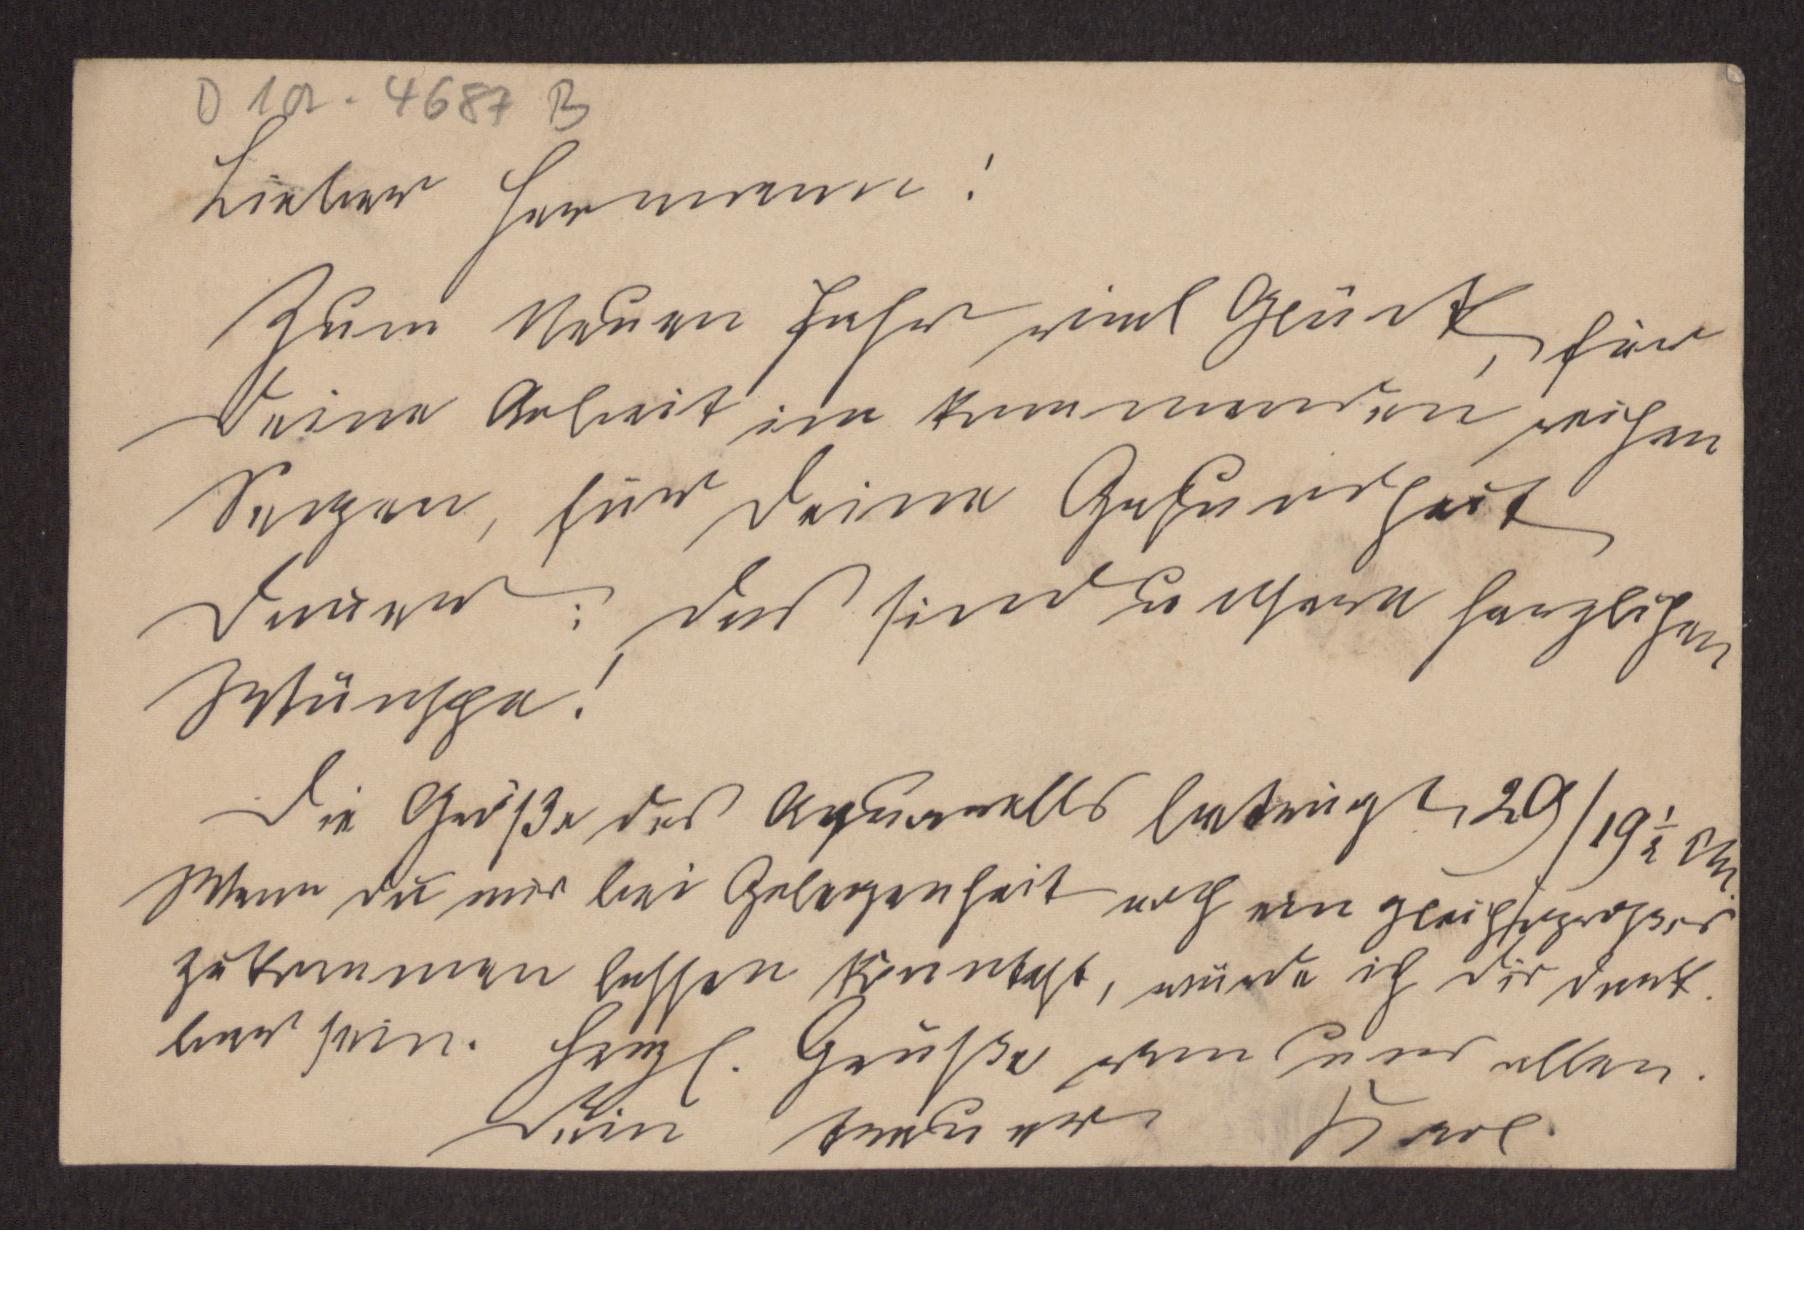 D 1a. 4687 B
Lieber Hermann!
Zum Neuen Jahr viel Glück, für
Deine Arbeit im kommenden reichen
Segen, für Deine Gesundheit
Dauer: das sind unsere herzlichen
Wünsche!
Die Größe des Aquarells beträgt 29/19½ cm.
Wenn du mir bei Gelegenheit noch ein gleichgroßes
zukommen lassen könntest, würde ich dir dank-
bar sein. Herzl. Grüße von uns allen.
Dein treuer Karl.